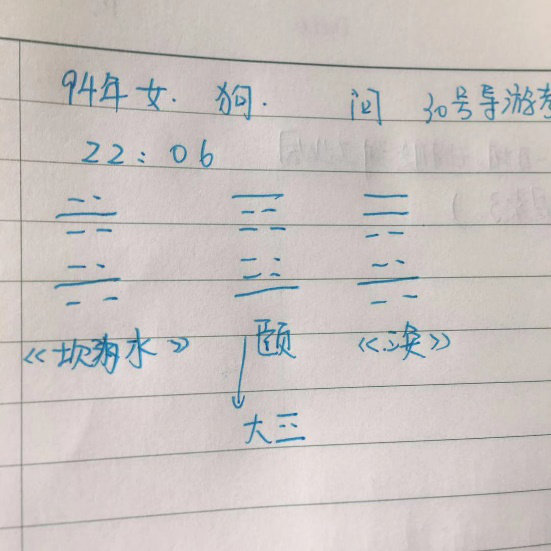 94年 女. 狗. 问 30号导游考
22:06
《坎为水》 颐 《涣》
大三